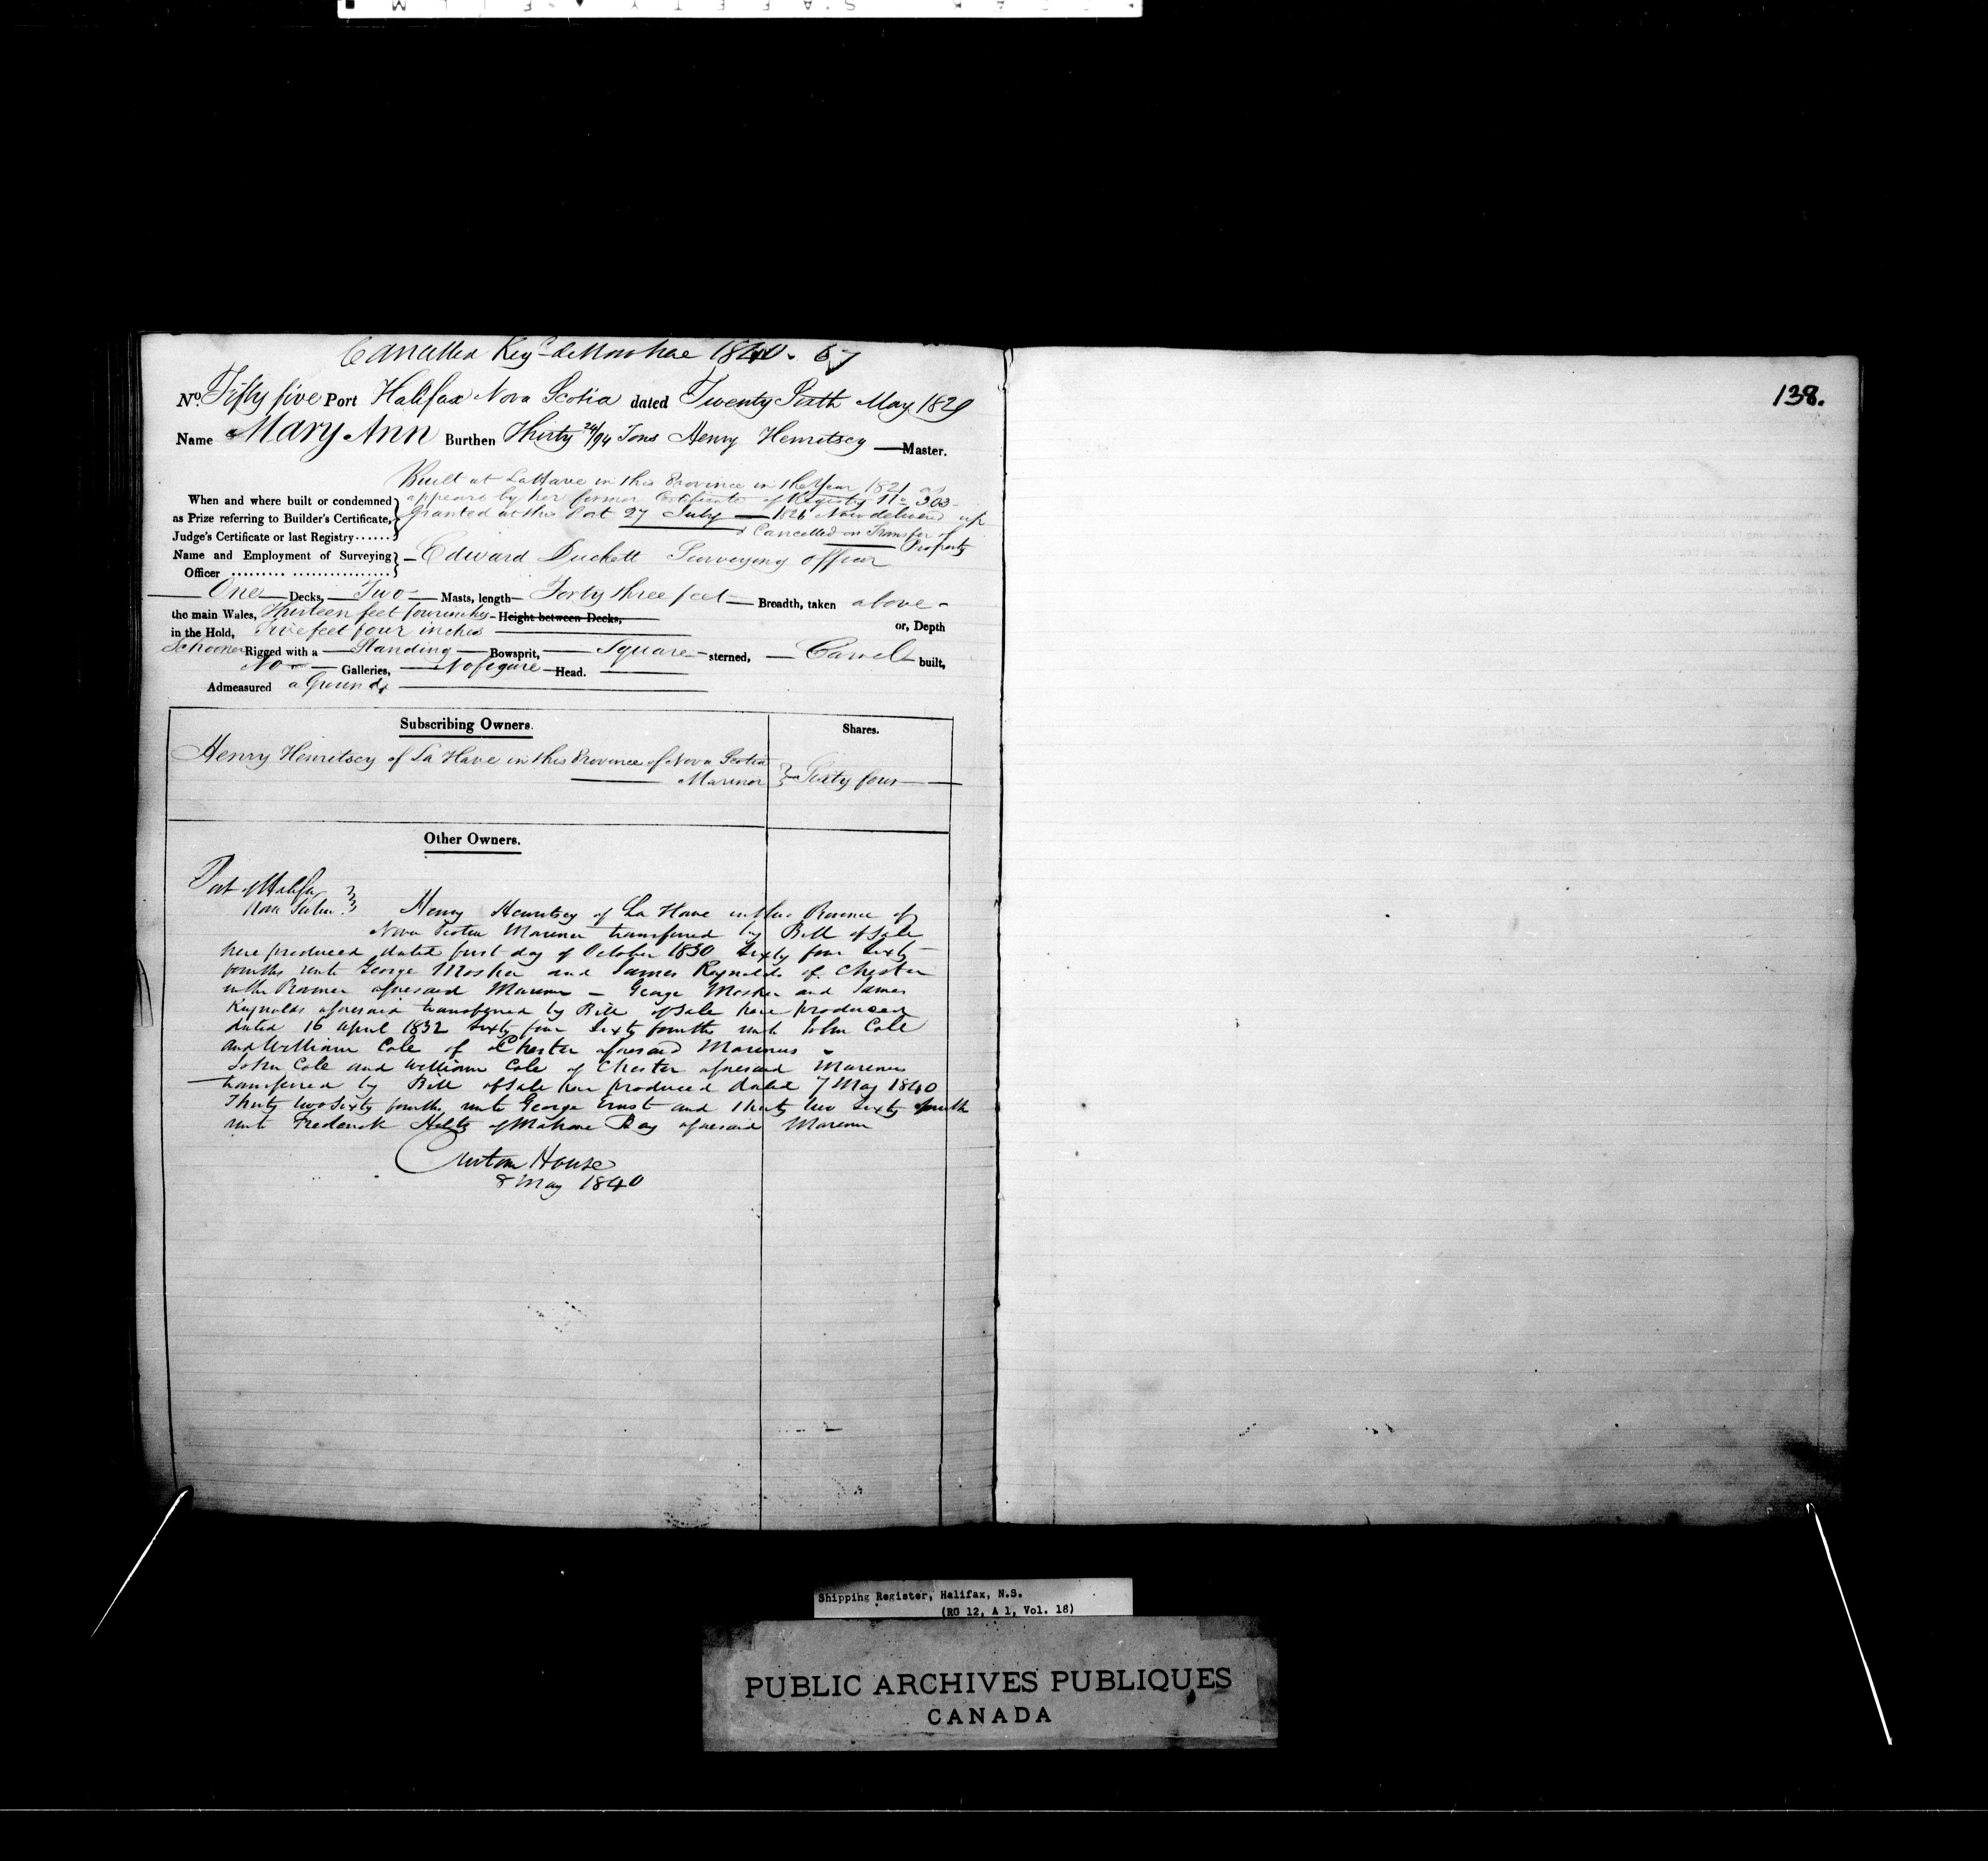 Cancelled Reg<sup>d</sup> de Novo here 1840. 67
138.
No. Fifty five Port Halifax Nova Scotia dated Twenty Sixth May 1829
Name Mary Ann Burthen Thirty 24/94 Tons Henry Hemitsey Master.
Built at LaHave in this Province in the Year 1821 as
When and where built or condemned appears by her former Certificate of Registry No 303
as Prize referring to Builder's Certificate, Granted at this Port 27 July 1826 Now delivered up
Judge's Certificate or last Registry...... & Cancelled on Transfer of Property
Name and Employment of Surveying Officer ......... ................ Edward Duckett Surveying officer
One Decks, Two Masts, length Forty three feet Breadth, taken above
the main Wales, Thirteen feet four inches Height between Decks, or, Depth
in the Hold, Five feet four inches
Schooner Rigged with a Standing Bowsprit, Square sterned, Carvel built,
No Galleries, No figure Head.
Admeasured a Ground
Subscribing Owners. Shares.
Henry Hemitsey of La Have in this Province of Nova Scotia
Mariner Sixty four
Other Owners.
Port of Halifax
Nova Scotia Henry Hemitsey of La Have in the Province of
Nova Scotia Mariner transferred by Bill of Sale
here produced dated first day of October 1830 Sixty four Sixty
fourths unto George Mosher and James Reynolds of Chester
in the Province aforesaid Mariners – George Mosher and James
Reynolds aforesaid transferred by Bill of Sale here produced
dated 16 April 1832 Sixty four Sixty fourths unto John Cole
and William Cole of Chester aforesaid Mariners
John Cole and William Cole of Chester aforesaid Mariners
transferred by Bill of Sale here produced dated 7 May 1840
Thirty two Sixty fourths unto George Ernst and Thirty two Sixty fourths
unto Frederick Heltz of Mahone Bay aforesaid Mariner
Custom House
8 May 1840
Shipping Register, Halifax, N.S.
(RG 12, A 1, Vol. 18)
PUBLIC ARCHIVES PUBLIQUES
CANADA